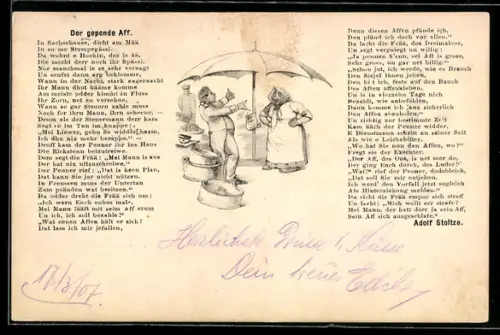 Der gepende Aff.
In Sachsehause, dicht am Mää
In so me Stumpegässi,
Da wohnt e Hockin, des is kää,
Die mecht derr noch ihr Spässi.
Nor manchmal is se sehr vernagt
Un sendst dann arg
Wann in der Nacht, stark angerascht
Ihr Mann dhut hääme komme
Am meiste odder kimmt in Fluss
Ihr Zorn, net zu versehne,
Wann so gar Steuern zahle muss
Noch for ihrn Mann, ihrn scheene. —
Drum als der Steuermann derr kam
Segt se im Ton im knappe:
„Mei Liewer, gehn Se widder haam,
Ich dhu nix mehr berappe.“ —
Druff kam der Penner ihr ins Haus
Die Rickstenn beizutreiwe.
Dem segt die Frää: „Mei Mann is aus
Der hat nix uffzuschreiwe.“
Der Penner rief: „Dat is keen Plan,
Dat kann Sie jar nicht nützen.
In Preussen muss der Untertan
Zum pfänden wat besitzen.“
Da odder dreht die Frää sich um:
„Ich wern Euch ebbes male,
Mei Mann lääft mit seim Aff erum
Un ich, ich soll bezahle?“
„Wat eenen Affen hält er sich?
Dat lass ich mir jefallen,
Denn diesen Affen pfände ich,
Den pfänd ich doch vor allen.“
Da lacht die Frää, des Dreimaloos,
Un segt vergniegt un willig:
„Ja penne S'enn, sei Aff is gross,
Sehr gross, un gar net billig.“
„Schon jut, ich werde, wie es Brauch
Den Siejel Ihnen jeben,
Den bitt ich, feste auf den Bauch
Des Affen anzukleben,
Un is in vierzehn Tage nich
Bezahlt, wie anbefohlen,
Dann komme ich janz sicherlich
Den Affen abzuholen.“ —
Un richtig zur bestimmte Zeit
Kam ääch der Penner widder,
E Dienstmann schritt an seiner Seit
Als wie e Leichebitter.
„Wo hat Sie nun den Affen, wo?“
Fregt sie der Exekter.
„Der Aff, des Oos, is net mer do,
Der ging Euch dorch, des Luder!“
„Wat?“ rief der Penner,
„Dat soll Sie mir entjelten.
Ich werd' den Vorfall jetzt sogleich
Als Hinterziehung melden.“
Da richt die Frää empor sich straff
Un lacht: „Mich wolle err strafe?
Mei Mann, der hett derr ja sein Aff,
Sein Aff sich ausgeschlafe.“
Adolf Stoltze.
Herzlichste Grüsse
Dein treuer
17/3/07